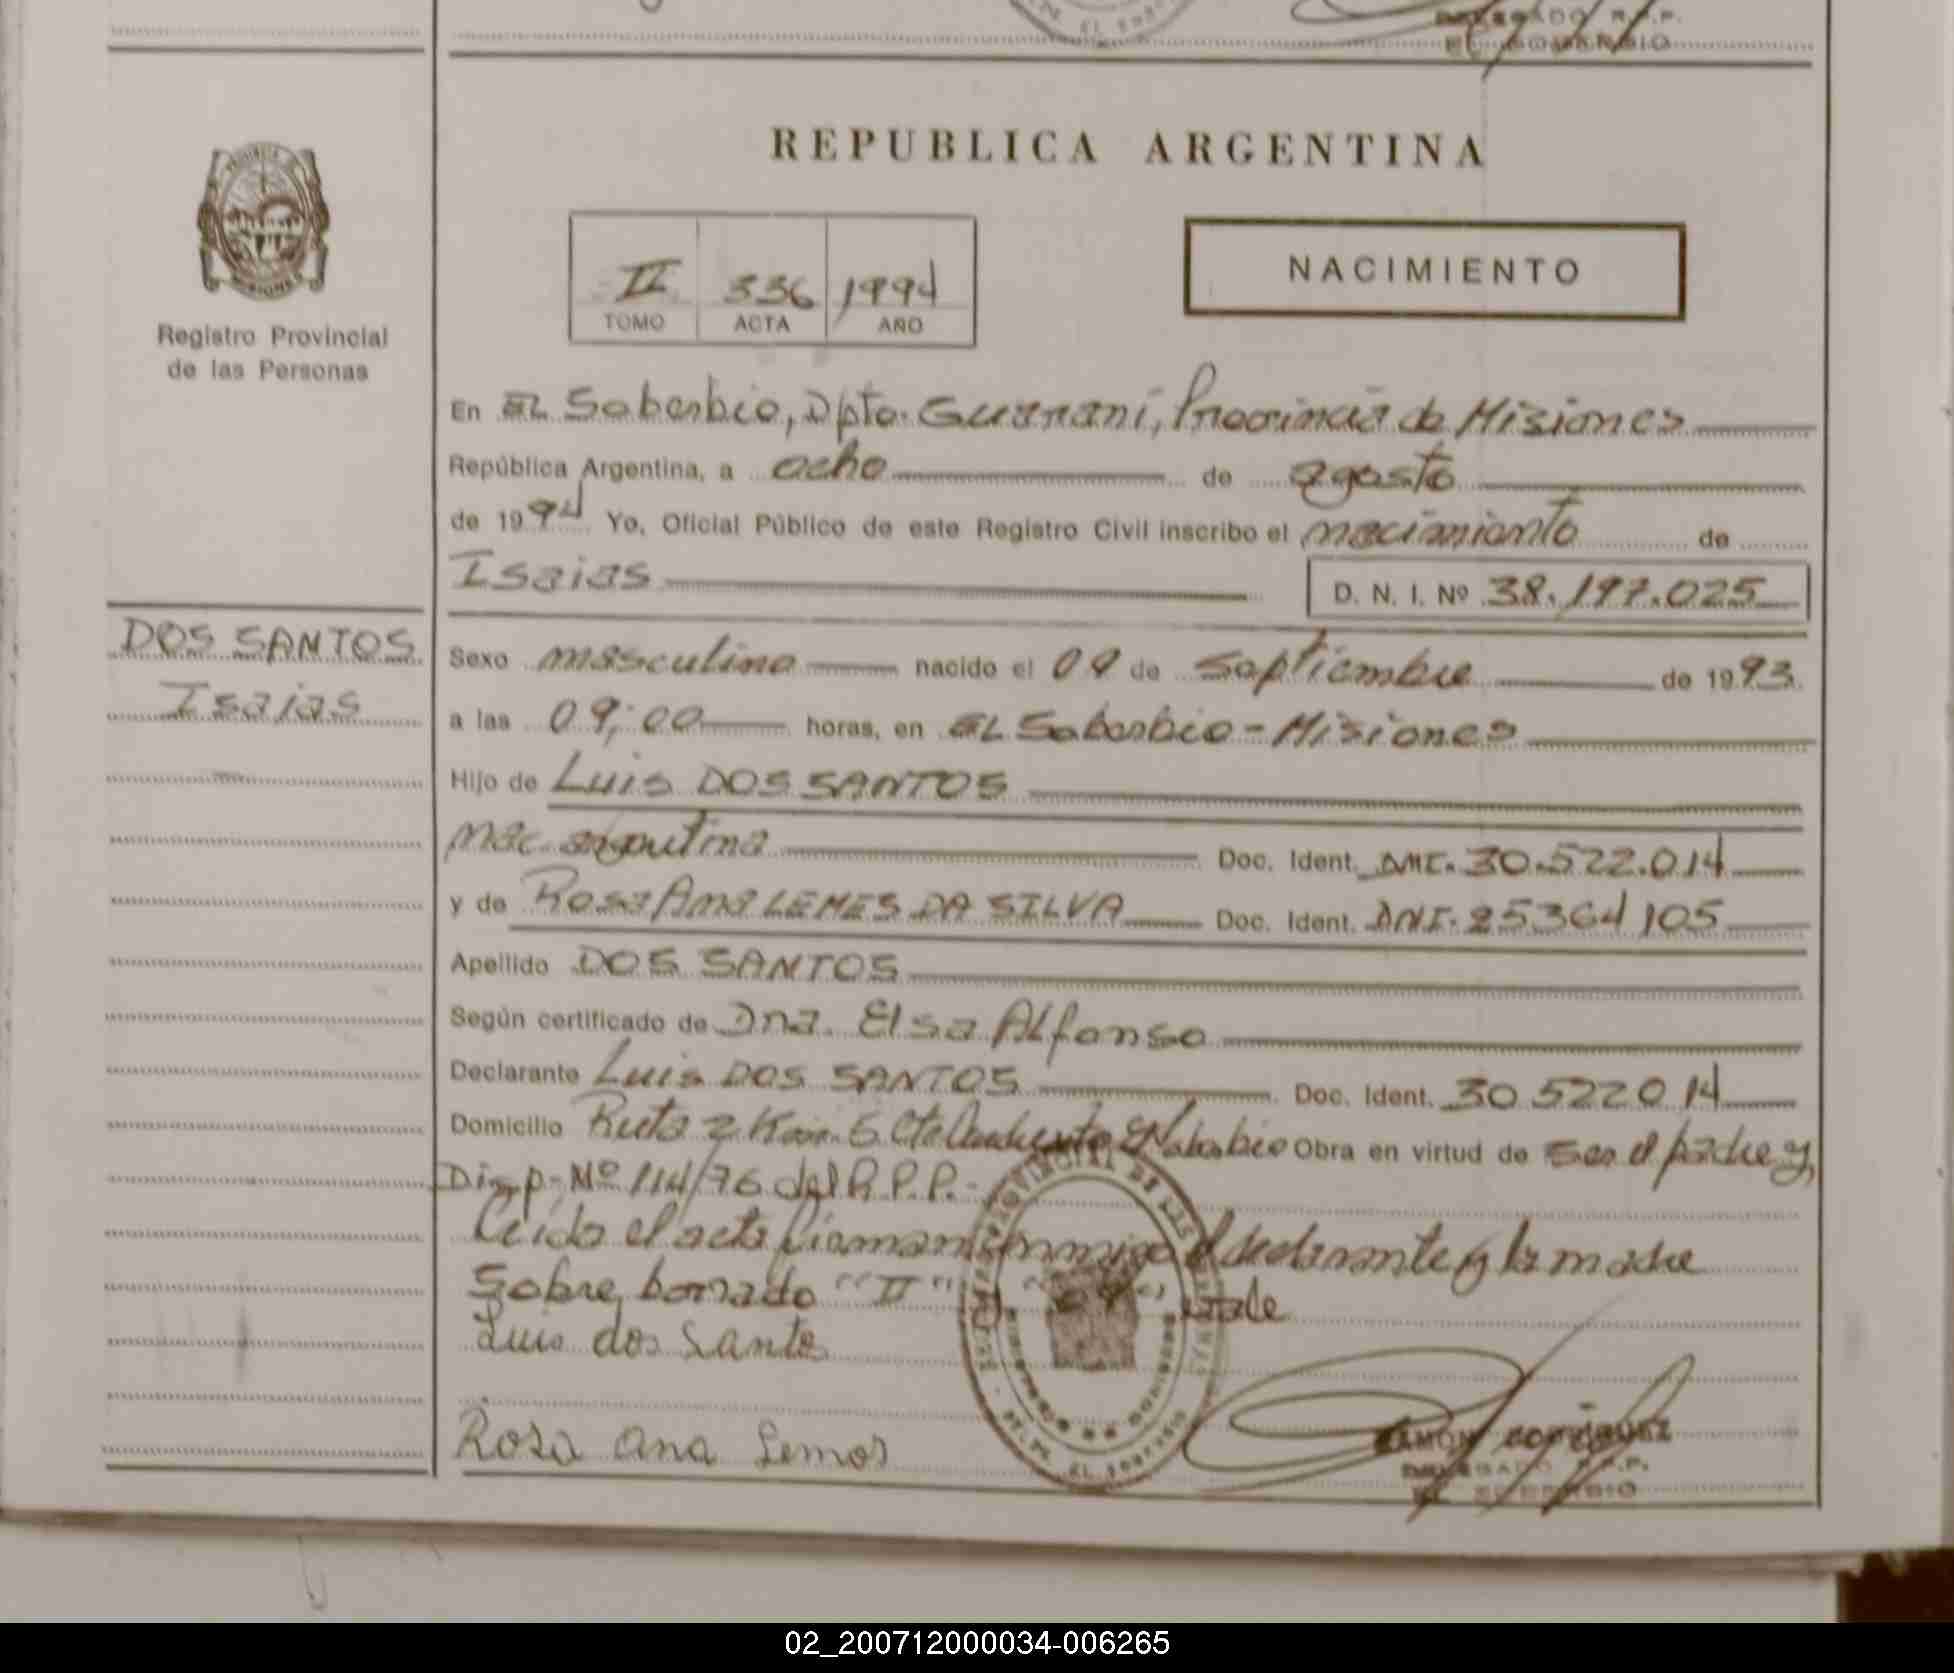 REPUBLICA ARGENTINA
II 336 1994
TOMO ACTA AÑO
NACIMIENTO
Registro Provincial
de las Personas
En EL Soberbio, Dpto. Guarani, Provincia de Misiones
República Argentina, a ocho de agosto
de 1994 Yo, Oficial Público de este Registro Civil inscribo el nacimiento de
Isaias D. N. I. Nº 38.197.025
DOS SANTOS
Isaias
Sexo masculino nacido el 09 de Septiembre de 1993
a las 09;00 horas, en EL Soberbio - Misiones
Hijo de Luis DOS SANTOS
nac. argentina Doc. Ident. DNI. 30.522.014
y de Rosa Ana LEMES DA SILVA Doc. Ident. DNI. 25364105
Apellido DOS SANTOS
Según certificado de Dna. Elsa Alfonso
Declarante Luis DOS SANTOS Doc. Ident. 30522014
Domicilio Ruta 2 Km. 6 Obra en virtud de ser el padre y
Disp. Nº 114/76 del R.P.P.-
Leido el acta firman conmigo el declarante y la madre
Sobre borrado "II" y "09" vale
Luis dos Santos
Rosa Ana Lemos
RAMON RODRIGUEZ
DELEGADO R.P.P.
EL SOBERBIO
02_200712000034-006265